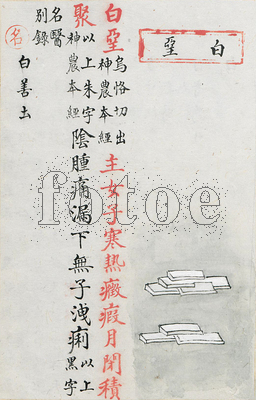 白堊
白堊烏恪切出神農本經主女子寒熱癥瘕月閉積
聚以上朱字神農本經陰腫痛漏下無子洩痢以上黑字
名醫別錄名白善土
fotoe